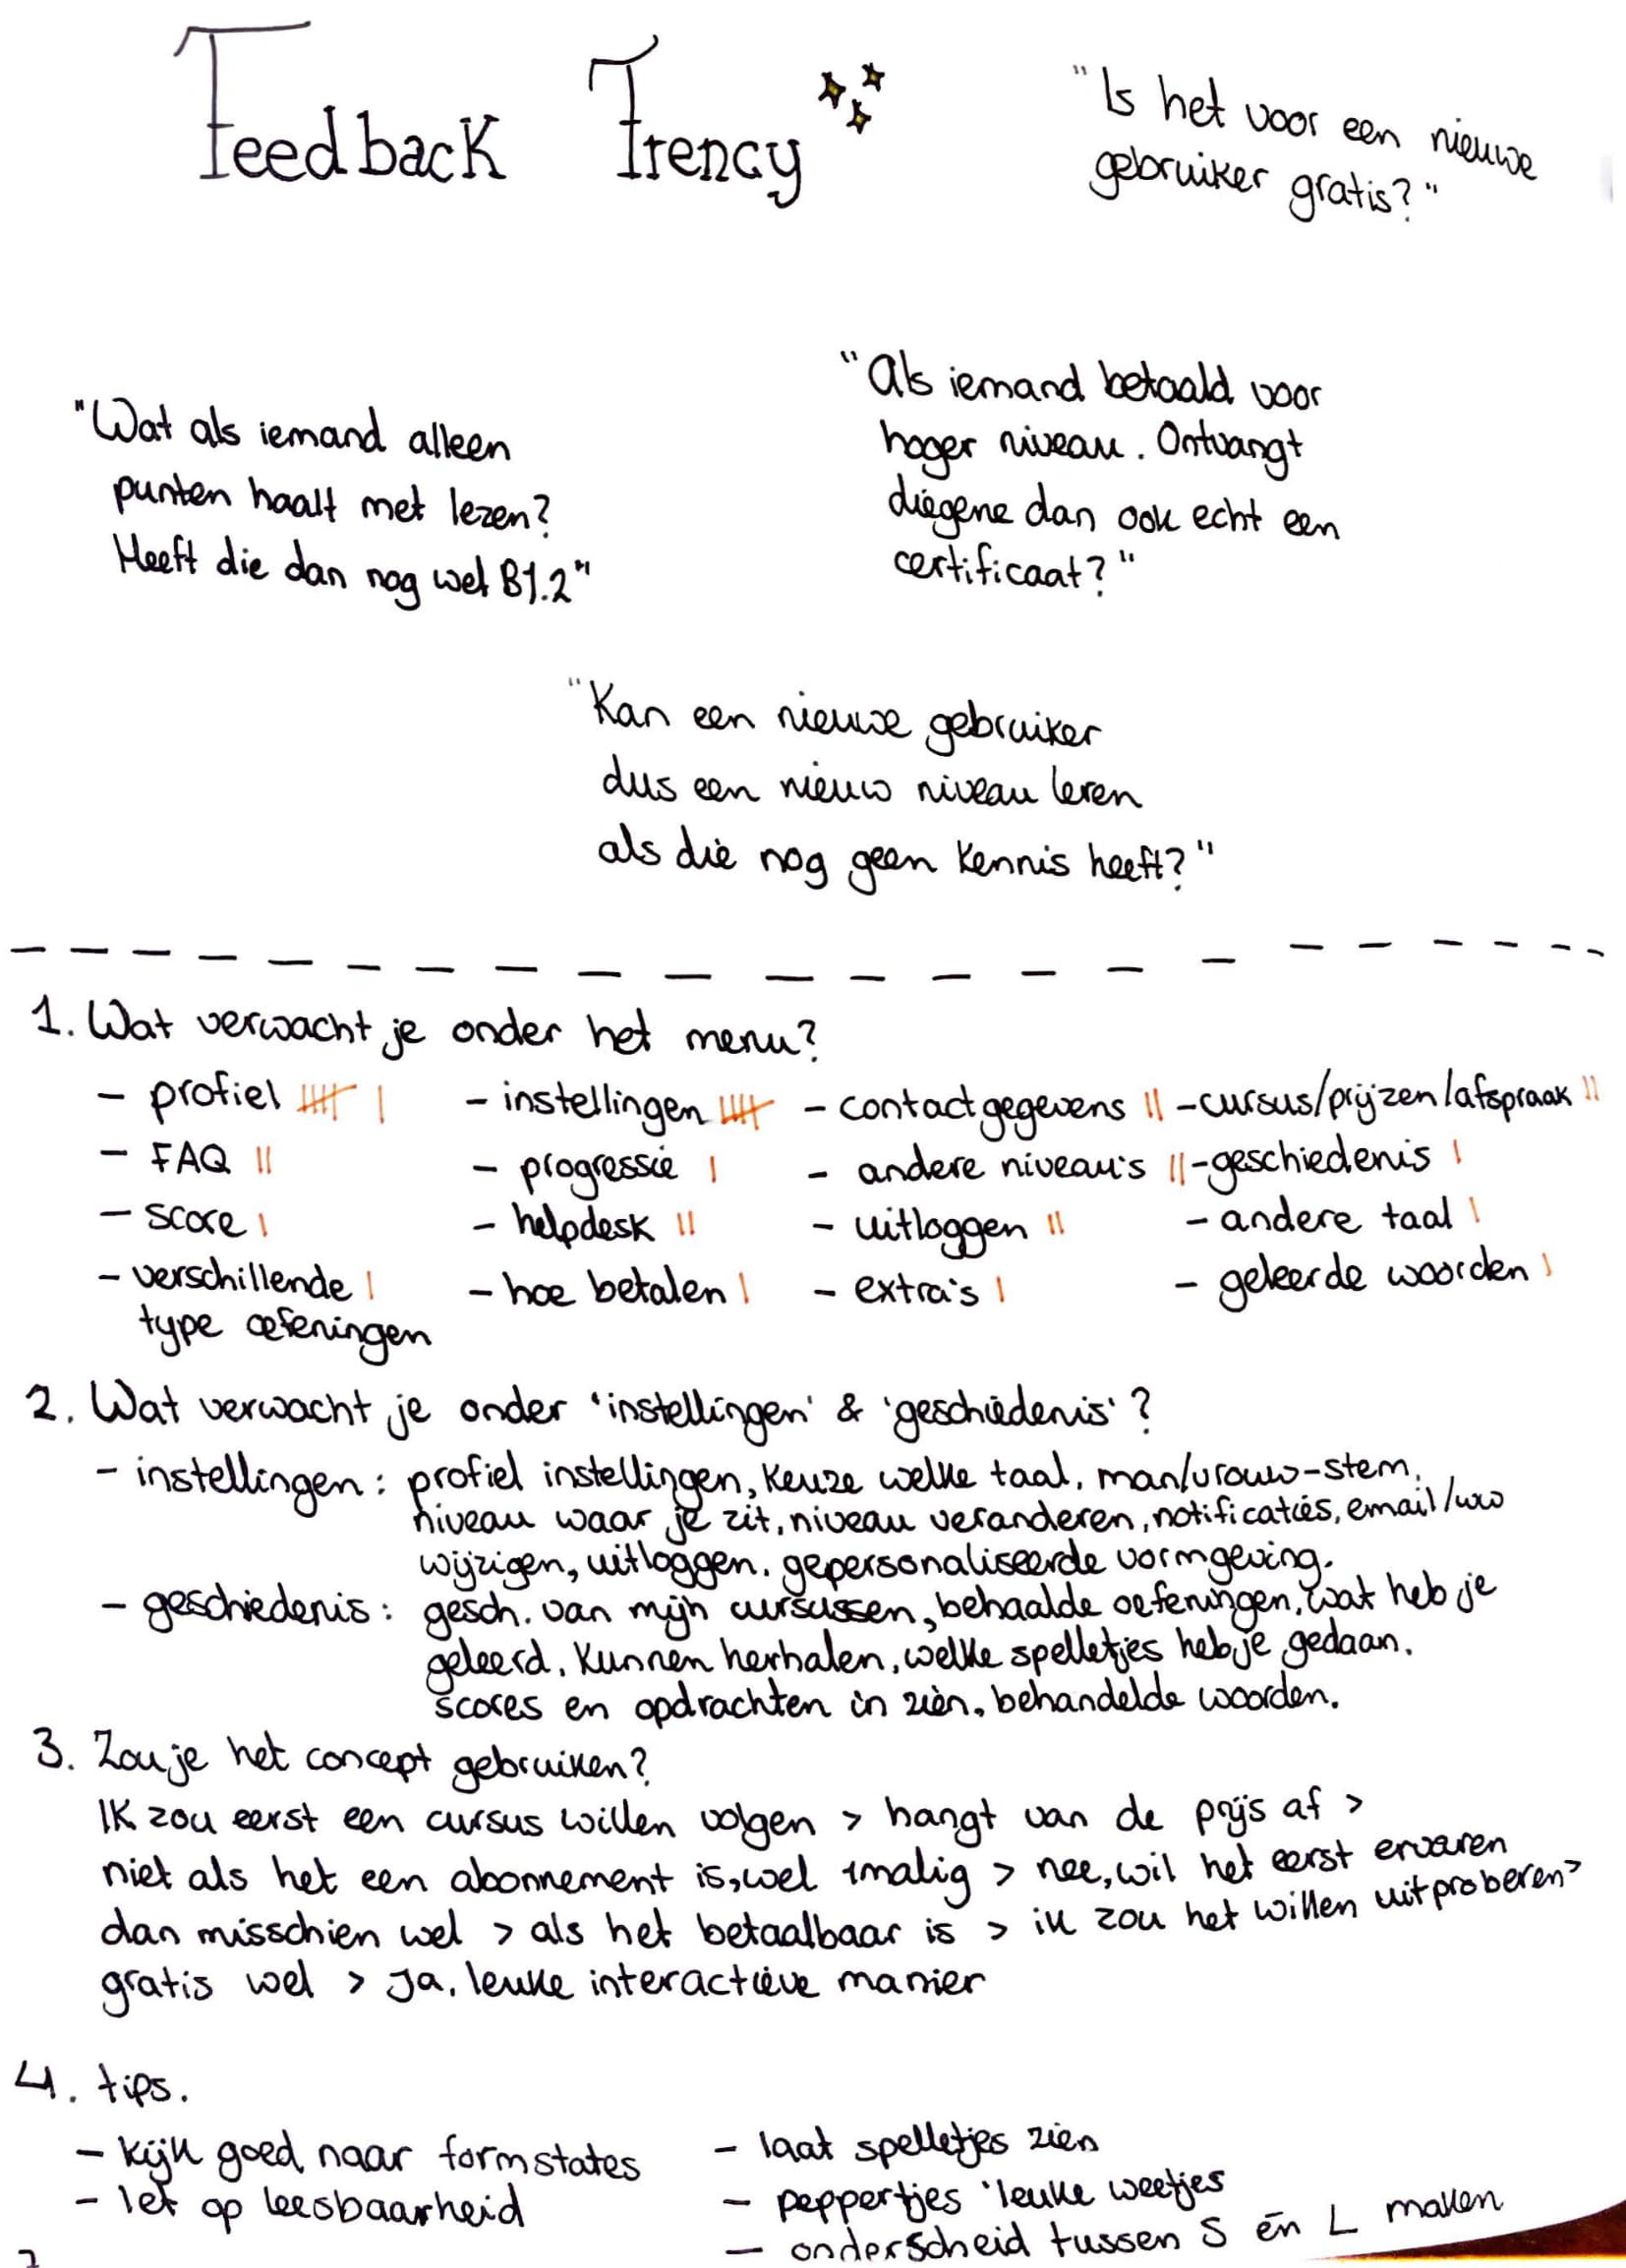 Feedback Trency
"Is het voor een nieuwe
gebruiker gratis?"
"Wat als iemand alleen
punten haalt met lezen?
Heeft die dan nog wel B1.2"
"Als iemand betaald voor
hoger niveau. Ontvangt
diegene dan ook echt een
certificaat?"
"Kan een nieuwe gebruiker
dus een nieuw niveau leren
als die nog geen kennis heeft?"
1. Wat verwacht je onder het menu?
- profiel - instellingen - contactgegevens - cursus/prijzen/afspraak
- FAQ - progressie - andere niveau's - geschiedenis
- score - helpdesk - uitloggen - andere taal
- verschillende - hoe betalen - extra's - geleerde woorden
type oefeningen
2. Wat verwacht je onder 'instellingen' & 'geschiedenis'?
- instellingen: profiel instellingen, keuze welke taal, man/vrouw-stem,
niveau waar je zit, niveau veranderen, notificaties, email/ww
wijzigen, uitloggen, gepersonaliseerde vormgeving.
- geschiedenis: gesch. van mijn cursussen, behaalde oefeningen, wat heb je
geleerd, kunnen herhalen, welke spelletjes heb je gedaan,
scores en opdrachten in zien, behandelde woorden.
3. Zou je het concept gebruiken?
Ik zou eerst een cursus willen volgen > hangt van de prijs af >
niet als het een abonnement is, wel 1malig > nee, wil het eerst ervaren
dan misschien wel > als het betaalbaar is > ik zou het willen uitproberen >
gratis wel > Ja, leuke interactieve manier
4. tips.
- kijk goed naar formstates
- let op leesbaarheid
- laat spelletjes zien
- peppertjes 'leuke weetjes
- onderscheid tussen S én L maken